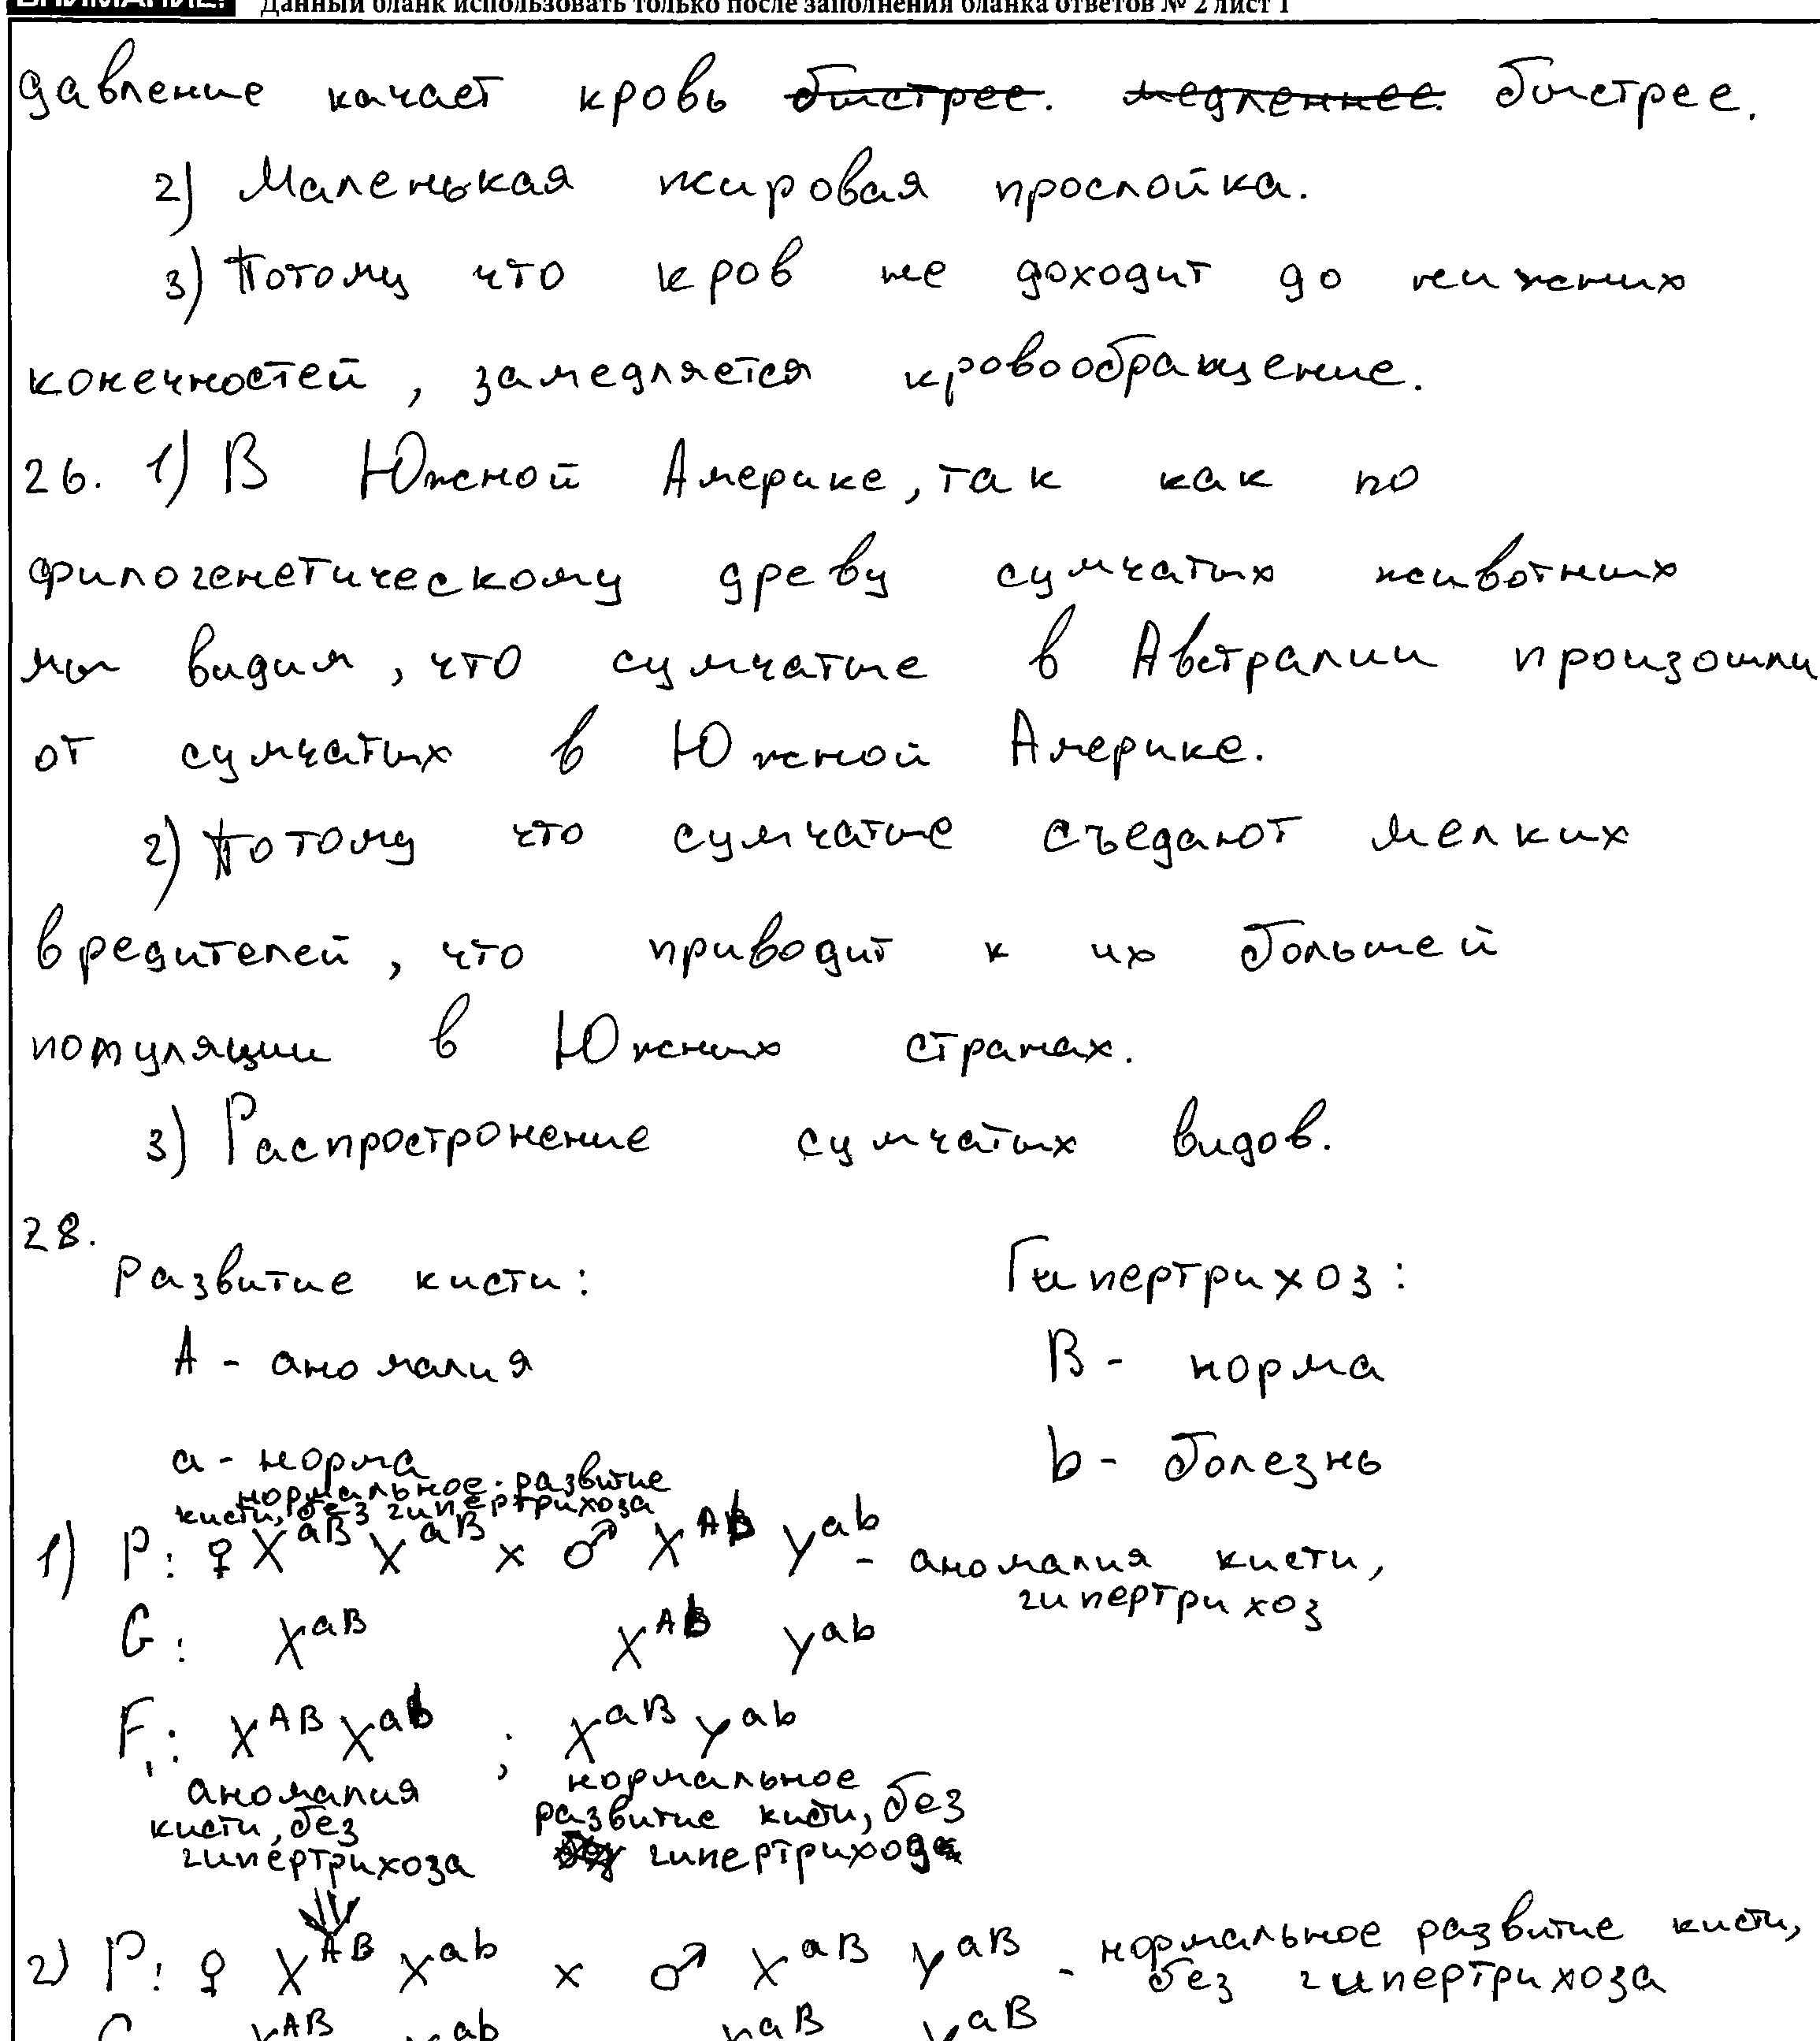 ВНИМАНИЕ! Данный бланк использовать только после заполнения бланка ответов № 2 лист 1
давление качает кровь быстрее. медленнее. быстрее.
2) Маленькая жировая прослойка.
3) Потому что кров не доходит до нижних
конечностей, замедляется кровообращение.
26. 1) В Южной Америке, так как по
филогенетическому древу сумчатых животных
мы видим, что сумчатые в Австралии произошли
от сумчатых в Южной Америке.
2) Потому что сумчатые съедают мелких
вредителей, что приводит к их большей
популяции в Южных странах.
3) Распростронение сумчатых видов.
28.
Развитие кисти: Гипертрихоз:
A - аномалия B - норма
a - норма b - болезнь
нормальное развитие
кисти, без гипертрихоза
1) P: ♀ X^aB X^aB x ♂ X^Ab Y^ab - аномалия кисти,
гипертрихоз
G: X^aB X^Ab Y^ab
F₁: X^AB X^ab ; X^aB Y^ab
аномалия нормальное
кисти, без развитие кисти, без
гипертрихоза гипертрихоза
2) P: ♀ X^AB X^ab x ♂ X^aB Y^aB - нормальное развитие кисти,
без гипертрихоза
G X^AB X^ab X^aB Y^aB